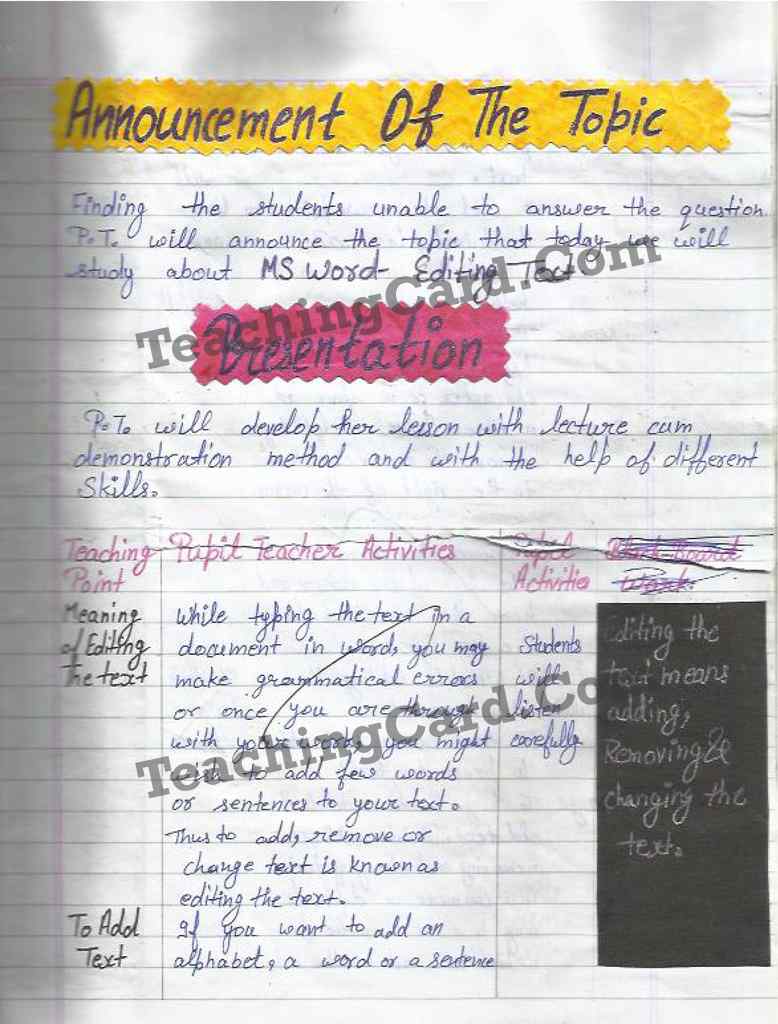 Announcement Of The Topic
Finding the students unable to answer the question
P.T. will announce the topic that today we will
study about MS Word- Editing Text
TeachingCard.Com
Presentation
P.T. will develop her lesson with lecture cum
demonstration method and with the help of different
Skills.
Teaching Point
Pupil Teacher Activities
Pupil Activities
Black Board Work.
Meaning
of Editing
the text
While typing the text in a
document in word, you may
make grammatical errors
or once you are through
with your work, you might
wish to add few words
or sentences to your text.
Thus to add, remove or
change text is known as
editing the text.
Students
will
listen
carefully
Editing the
text means
adding,
Removing &
changing the
text.
TeachingCard.Co
To Add
Text
If you want to add an
alphabet, a word or a sentence